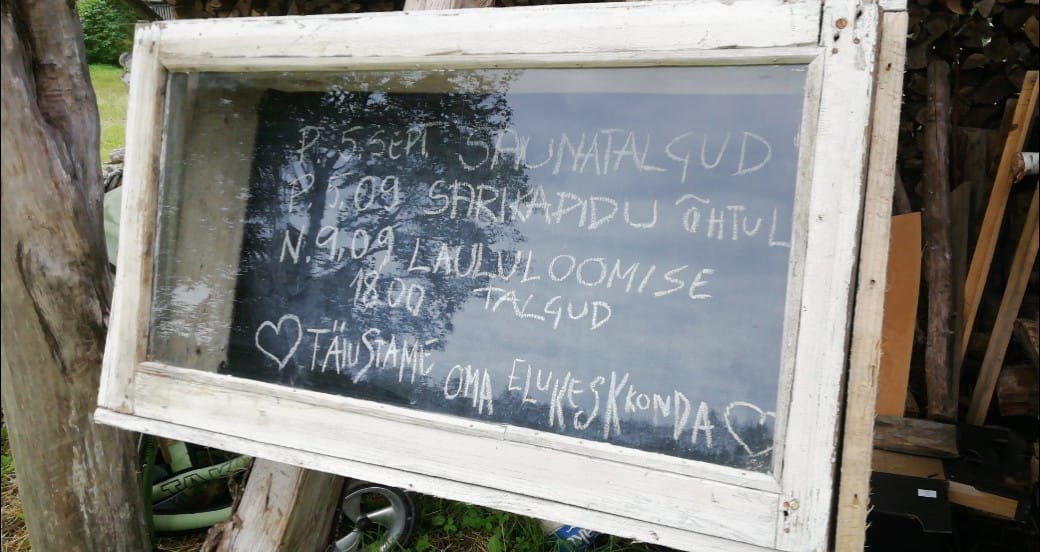 P. 5 SEPT SAUNATALGUD
P. 5.09 SARIKAPIDU ÕHTUL
N. 9.09 LAULULOOMISE
18.00 TALGUD
♡ TÄIUSTAME OMA ELUKESKKONDA ♡